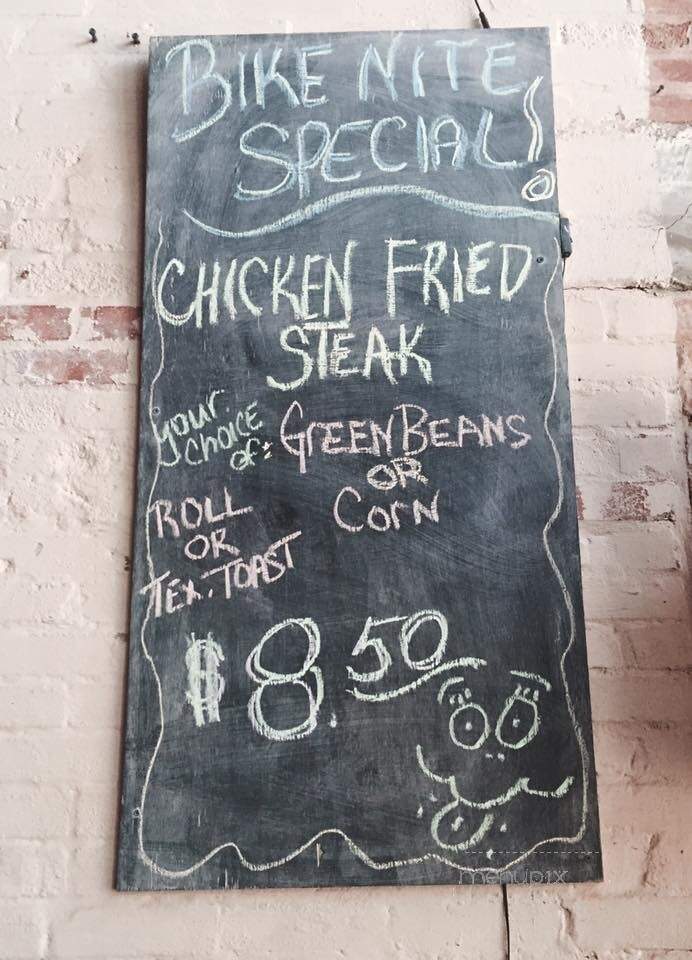 BIKE NITE
SPECIAL!
CHICKEN FRIED
STEAK
your
choice
of:
GREEN BEANS
OR
CORN
ROLL
OR
TEX. TOAST
$8.50
menupix